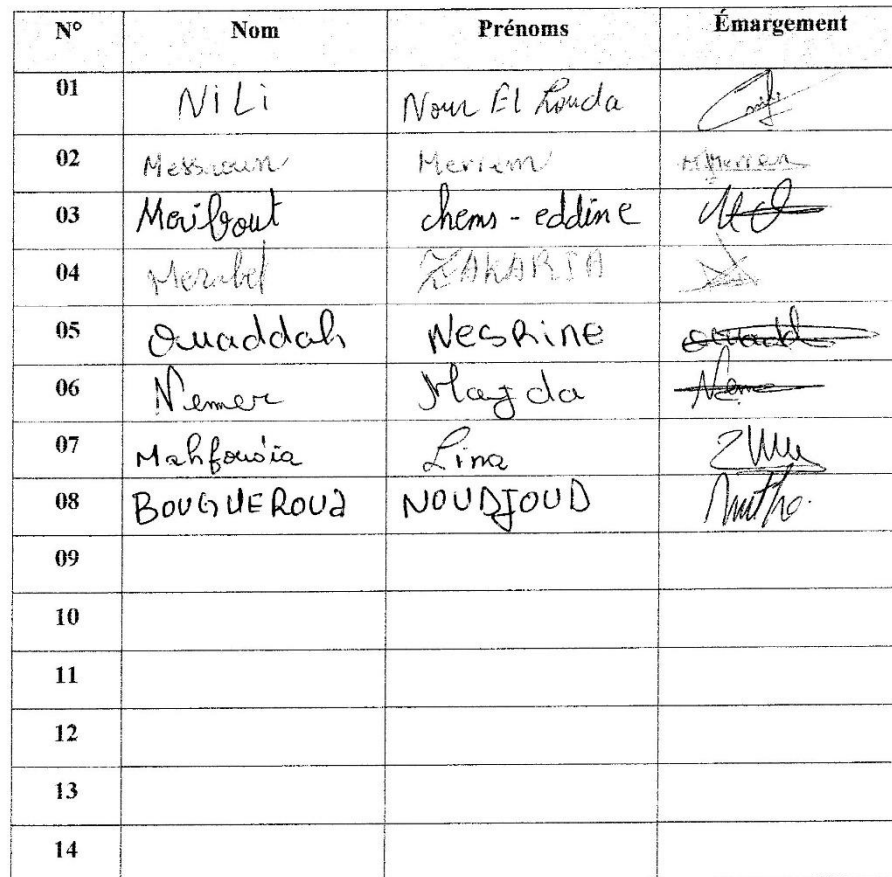 N° Nom Prénoms Émargement
01 NiLi Nour El houda
02 Messaoun Meriem
03 Meribout chems - eddine
04 Merabet ZAKARIA
05 Ouaddah NesRine ouadd
06 Nemer Magda Neme
07 Mahfoudia Lina
08 BOUGUEROUA NOUDJOUD
09
10
11
12
13
14